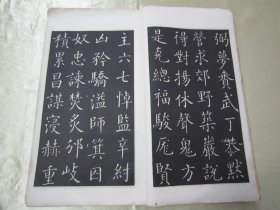 弼夢賚武丁恭默
營求郊野築巖說
得對揚休聲鬼方
是克總福駿厖賢
主六七悼監辛紂
凶矜驕溢師箕囚
奴忠諫焚炙邠岐
積累昌謀寖赫重